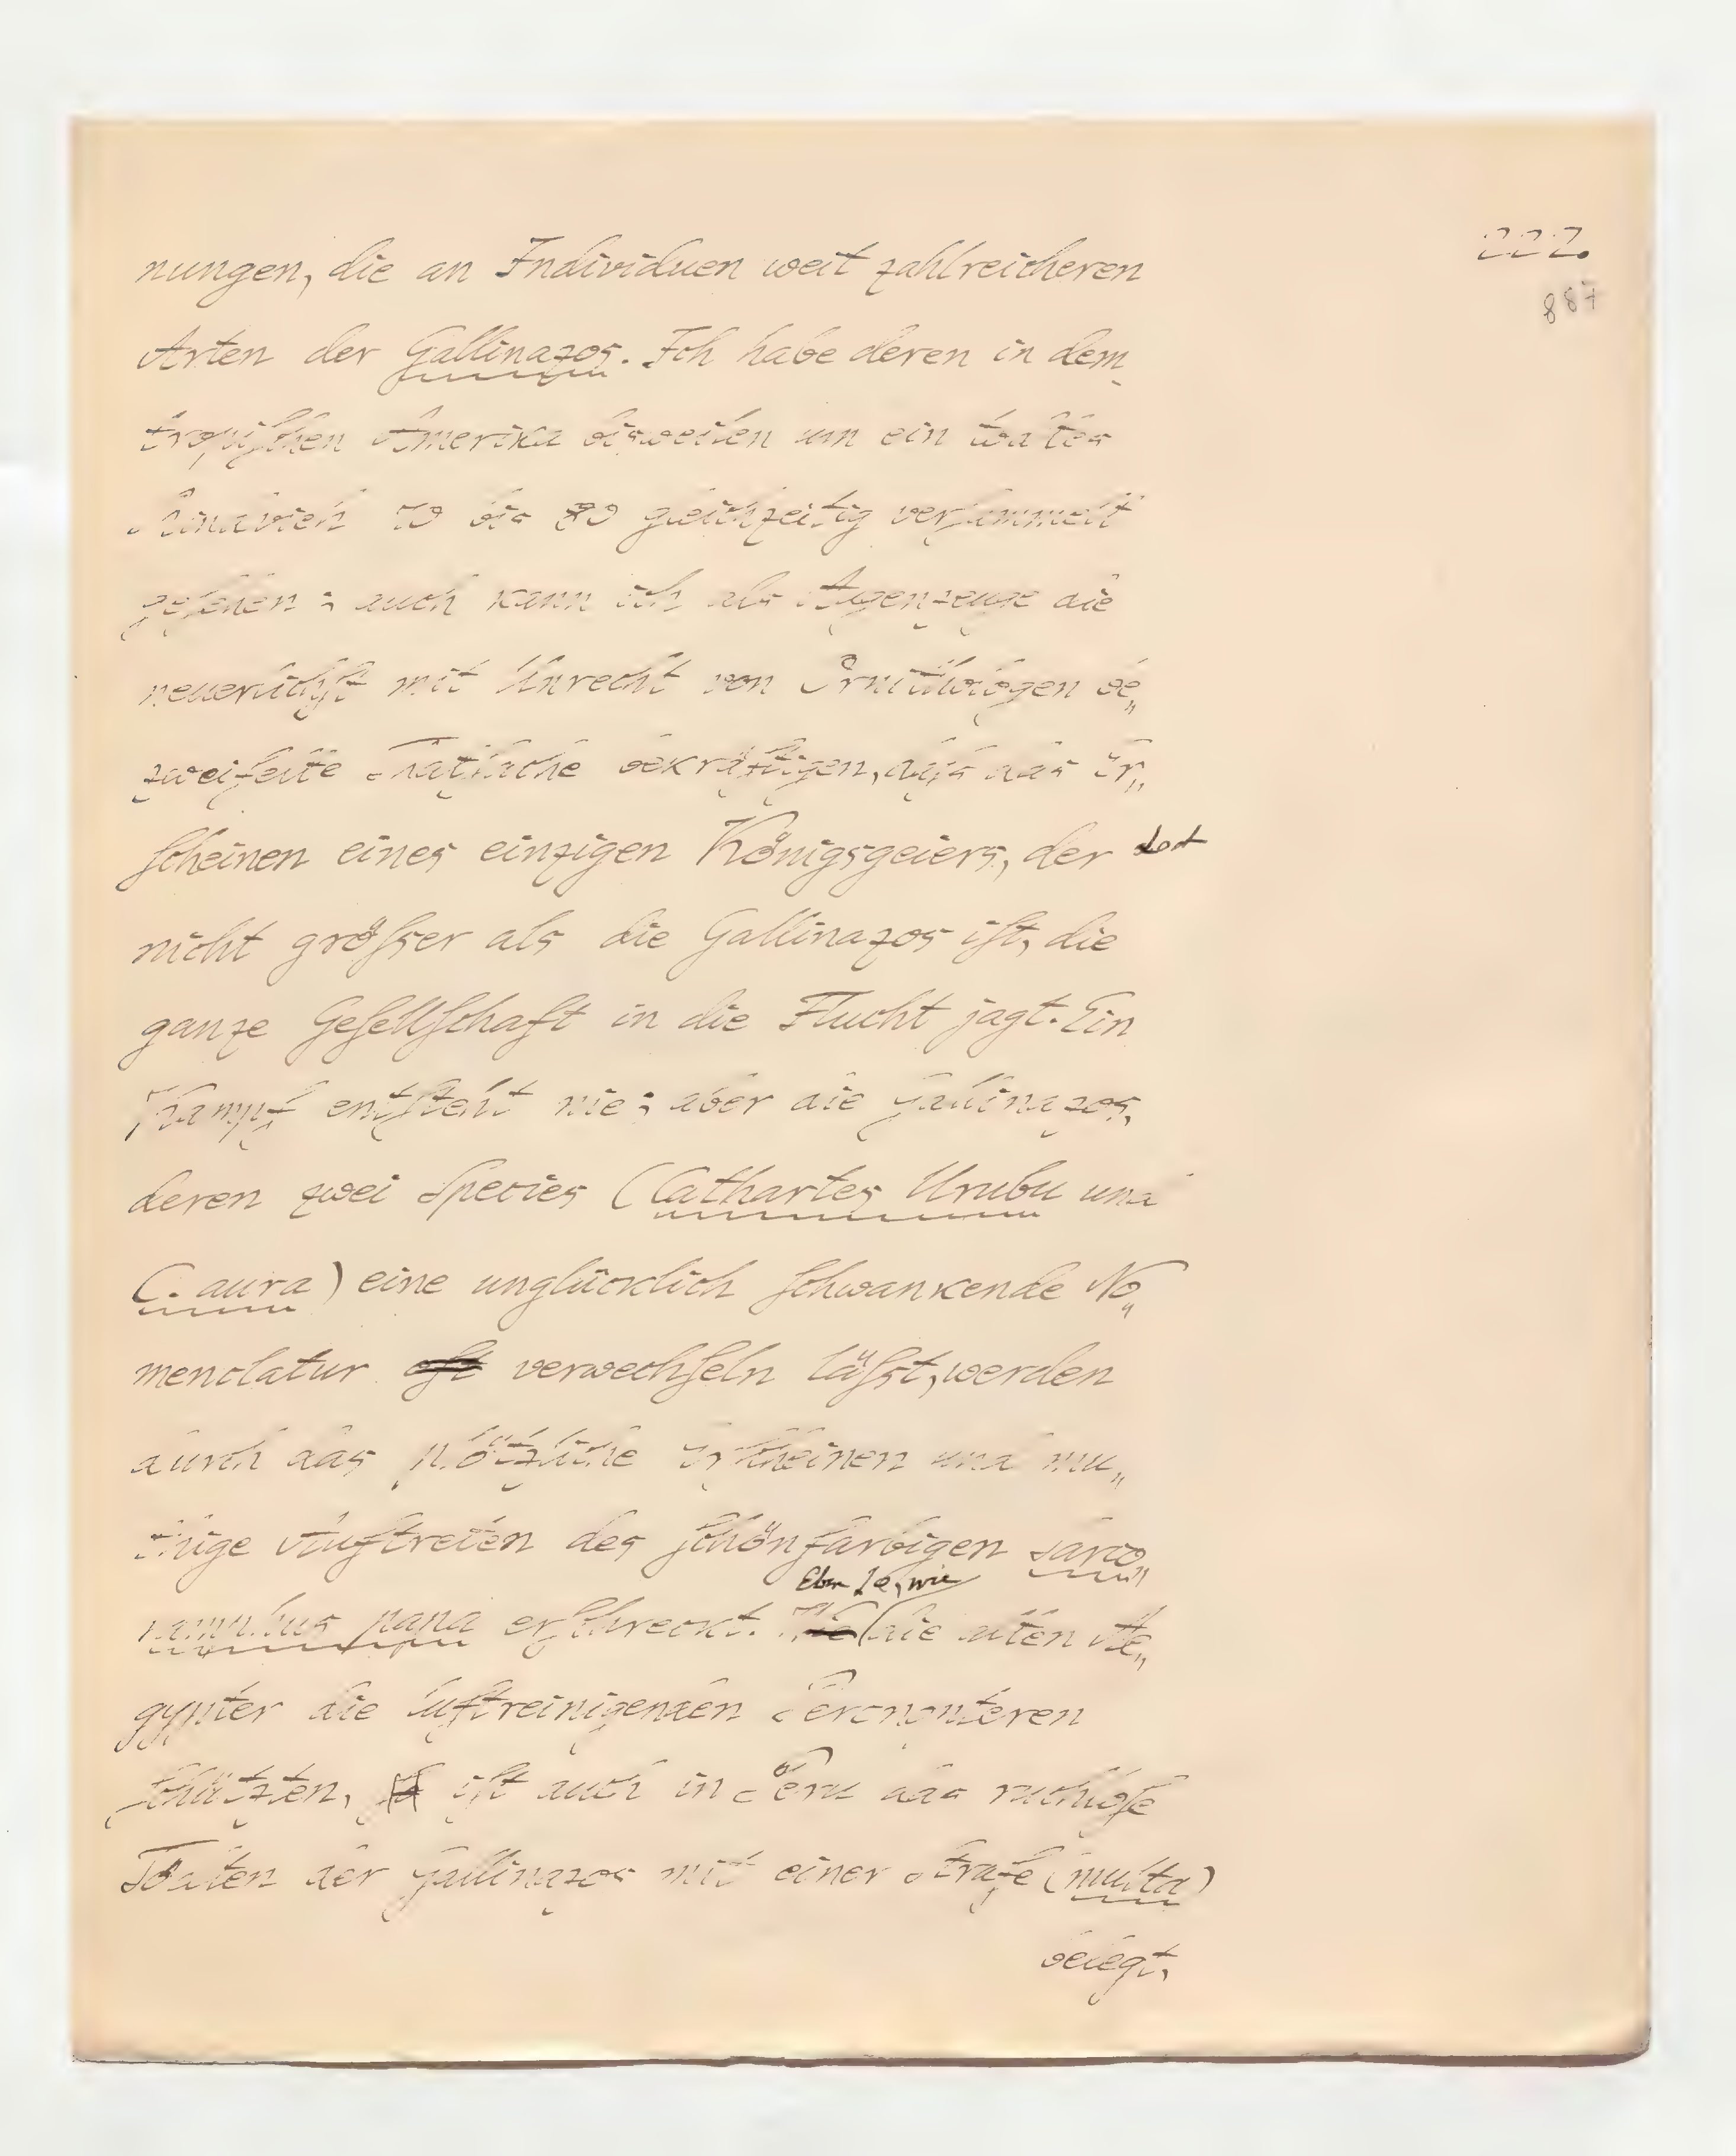 222.
887
nungen, die an Individuen weit zahlreicheren
Arten der Gallinazos. Ich habe deren in dem
tropischen Amerika bisweilen um ein todtes
70 bis 80 gleichzeitig versammelt
gesehen; auch kann ich als Augenzeuge die
neuerlichst mit Unrecht von Ornithologen be„
zweifelte Thatsache bekräftigen, dass das Er„
scheinen eines einzigen Königsgeiers, der doch
nicht grösser als die Gallinazos ist, die
ganze Gesellschaft in die Flucht jagt. Ein
Kampf entsteht nie; aber die Gallinazos,
deren zwei Species (Cathartes Urubu und
C. aura) eine unglücklich schwankende No„
menclatur oft verwechseln lässt, werden
durch das plötzliche Erscheinen und mu„
thige Auftreten des schönfarbigen Sarco„
ramphus papa erschreckt. Wie Eben so, wie die alten Ae„
gypter die luftreinigenden Percnopteren
schützten, so ist auch in Peru das ruchlose
Tödten der Gallinazos mit einer Strafe (multa)
belegt,